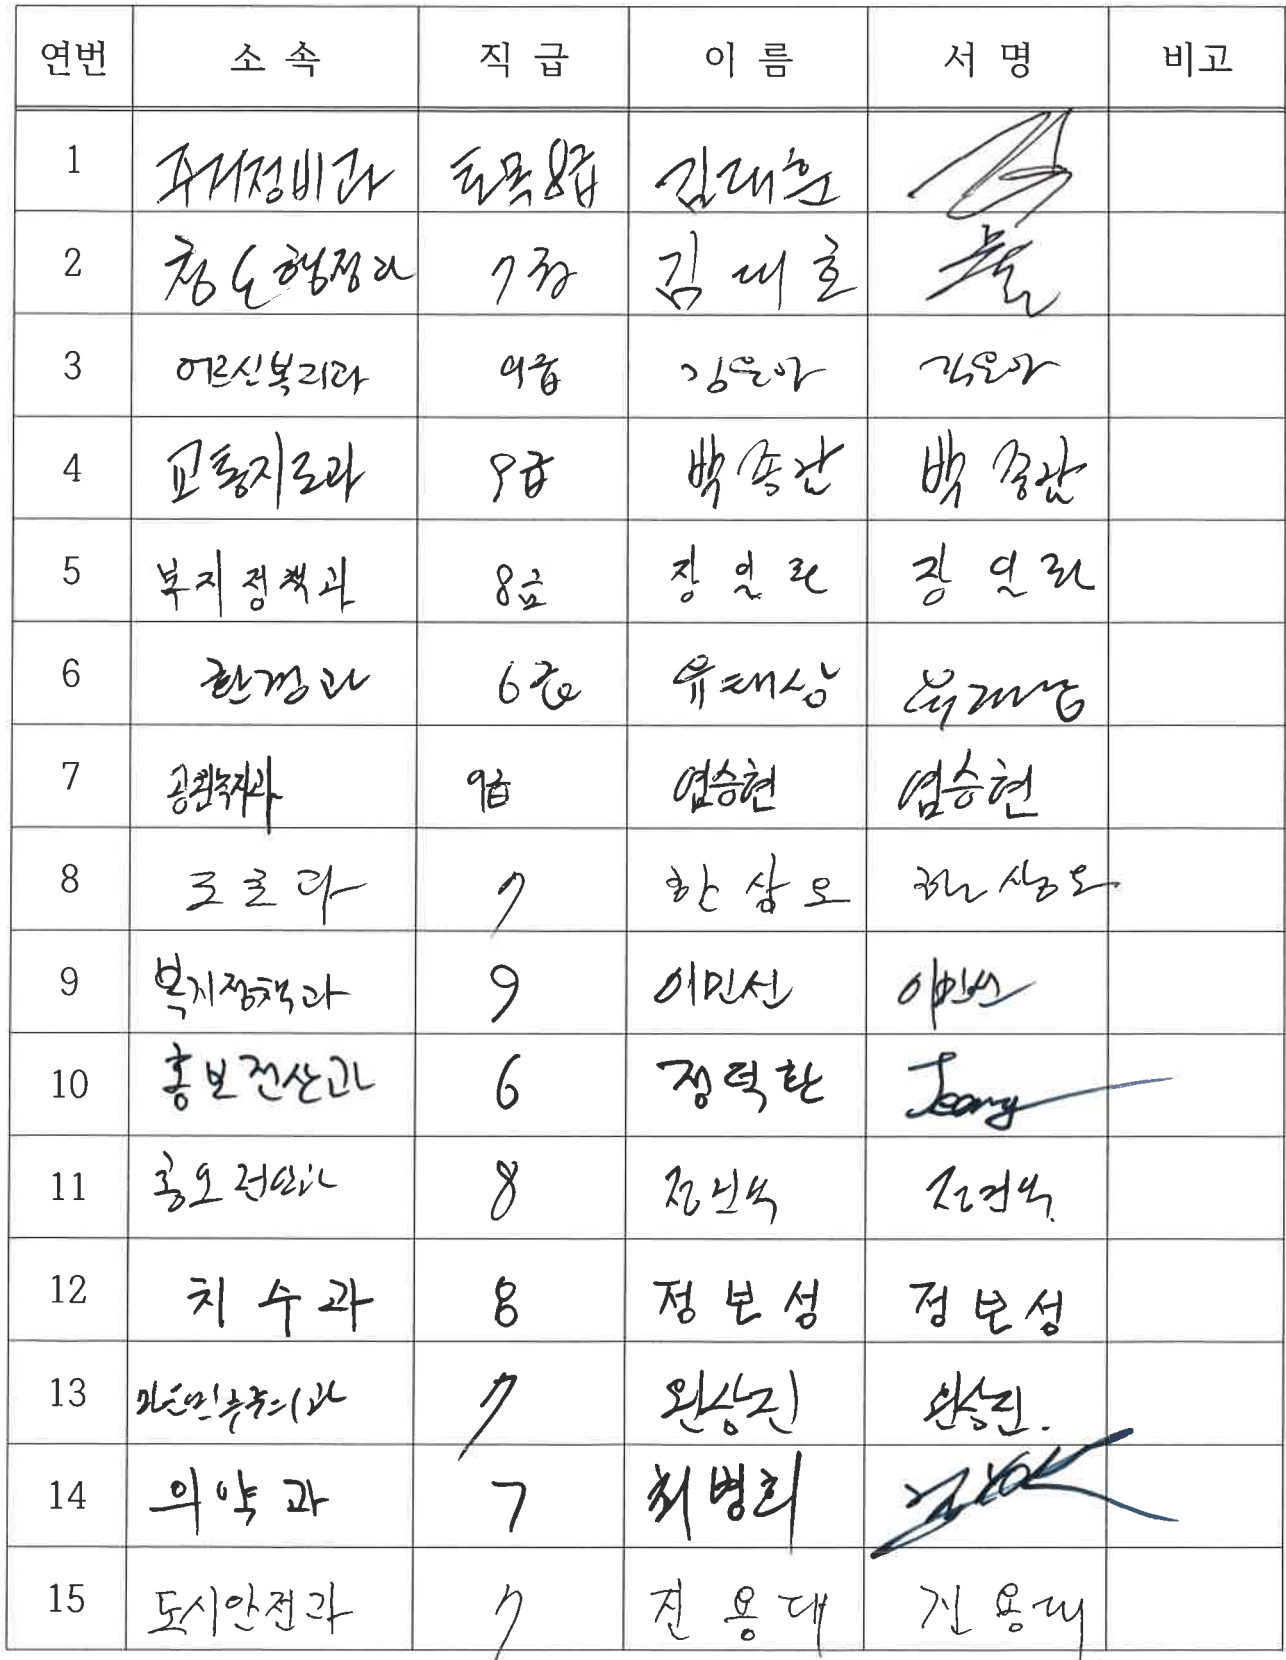 연번 소 속 직 급 이 름 서 명 비고
1 주거정비과 토목8급 김대훈
2 청소행정과 7급 김대호
3 어르신복지과 9급 김은아 김은아
4 교통지도과 9급 백종관 백종관
5 복지정책과 8급 장일환 장일환
6 환경과 6급 유태상 유태상
7 공원녹지과 9급 엽승현 엽승현
8 도로과 7 한상오 한상오
9 복지정책과 9 이민선 이민선
10 홍보전산과 6 정덕환 Jeong
11 홍보전산과 8
12 치수과 8 정보성 정보성
13 7 왕상진
14 의약과 7 최병희
15 도시안전과 7 진용대 진용대